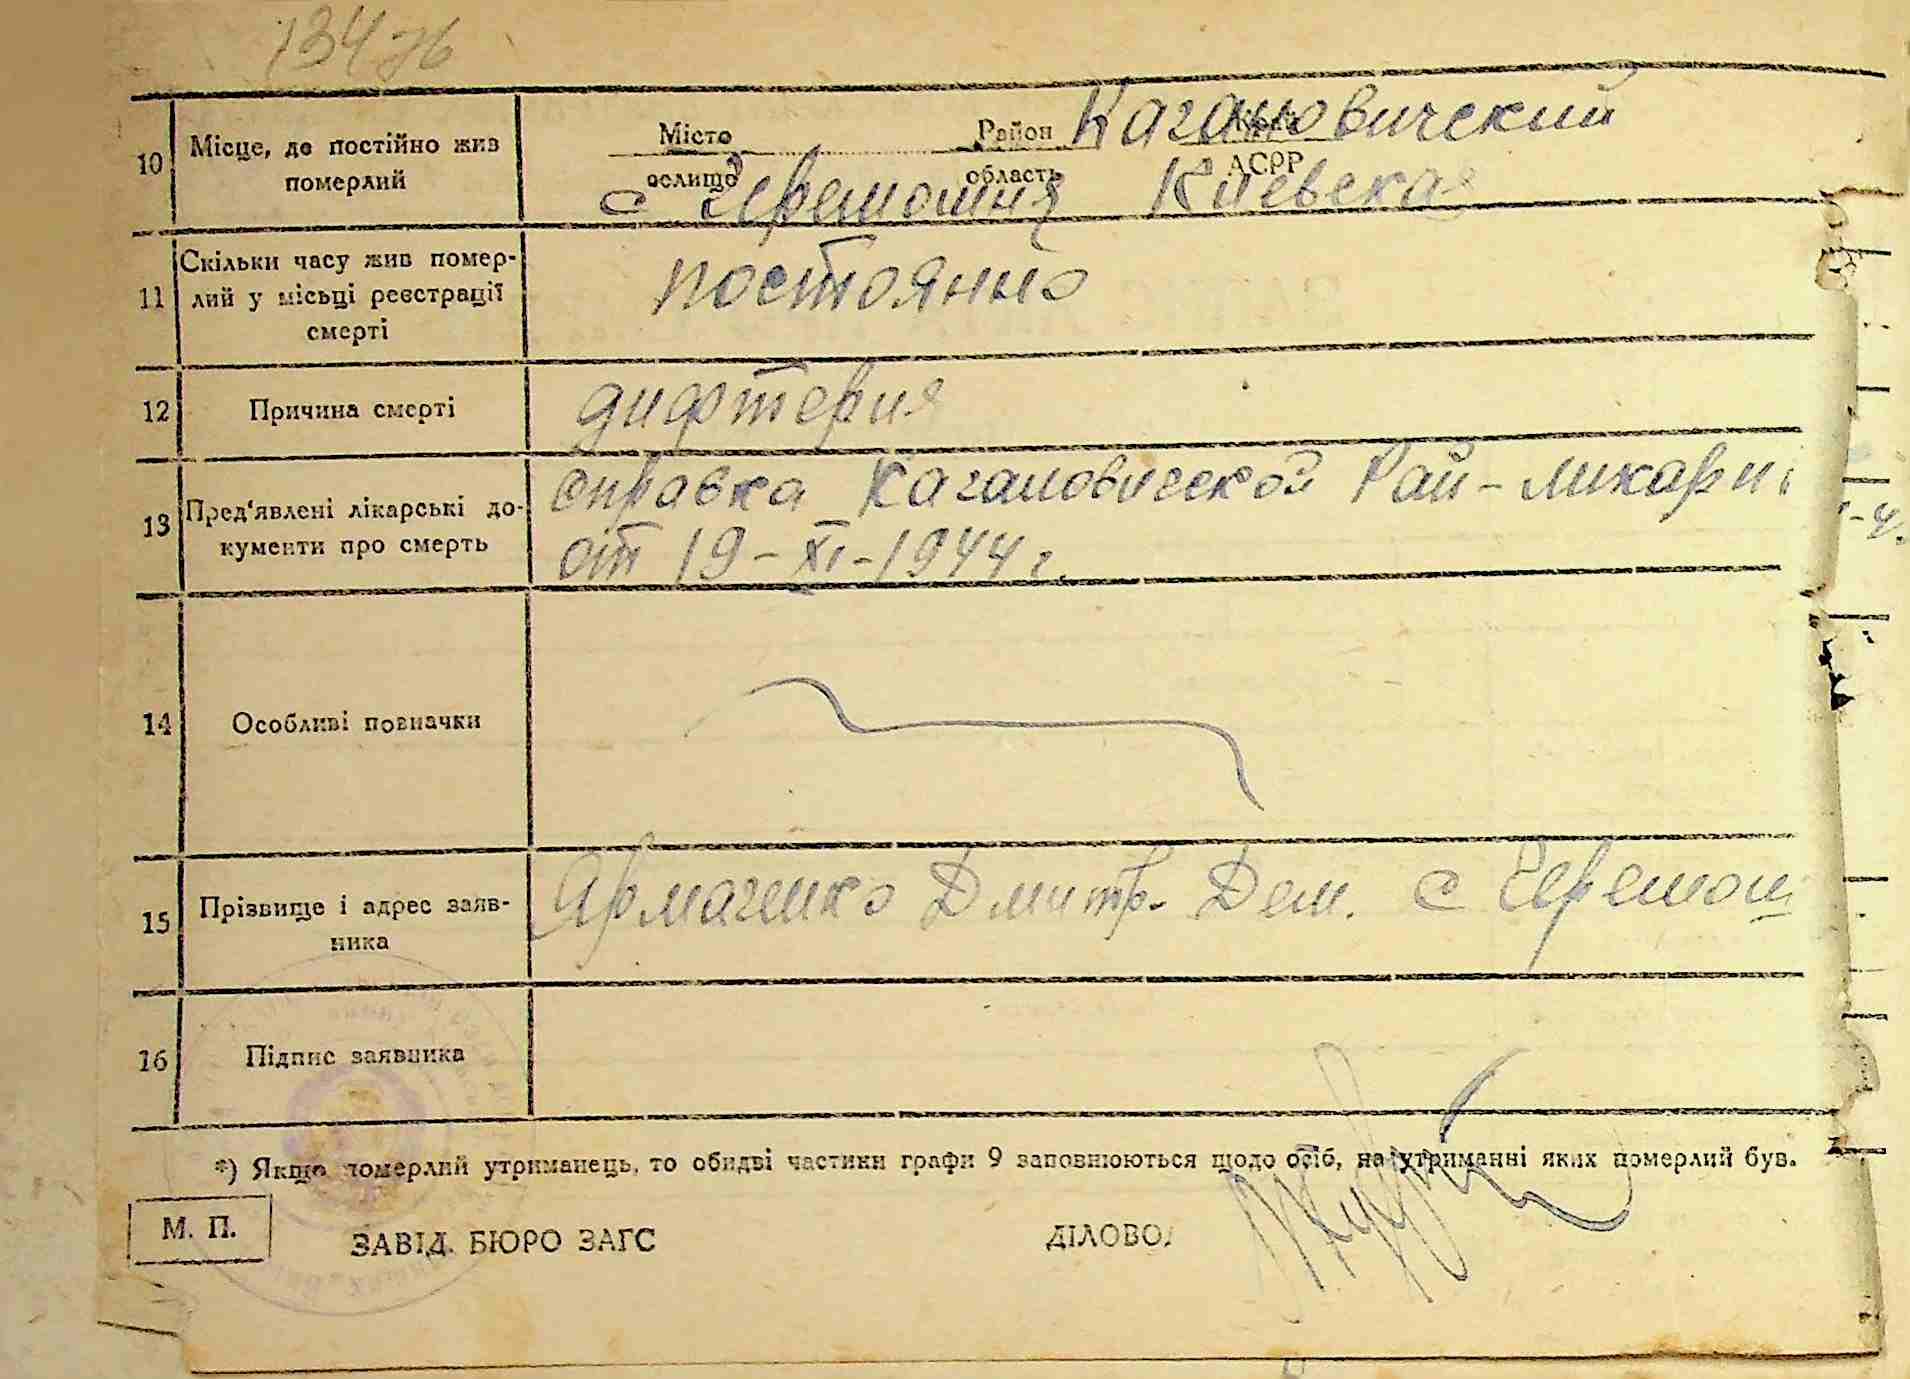 134
10 Місце, де постійно жив померлий
Місто Район Кагановичский
селище с Черемошня область АСРР Киевская
11 Скільки часу жив помер-
лий у місьці реєстрації
смерті
постоянно
12 Причина смерті
дифтерия
13 Пред'явлені лікарські до-
кументи про смерть
справка Кагановической Рай-ликарни
от 19-XI-1944 г.
14 Особливі позначки
15 Прізвище і адрес заяв-
ника
Ярмаченко Дмитр. Дем. с Черемош
16 Підпис заявника
*) Якщо померлий утриманець, то обидві частини графи 9 заповнюються щодо осіб, на утриманні яких померлий був.
М. П.
ЗАВІД. БЮРО ЗАГС
ДІЛОВО